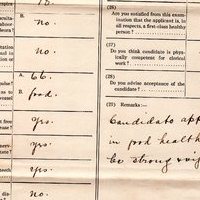 18.
B.
no.
no.
A.
66.
B.
good.
yes.
yes.
yes.
no.
(26)
Are you satisfied from this exam-
ination that the applicant is, in
all respects, a first-class healthy
person ?
(27)
Do you think candidate is physi-
cally competent for clerical
work ?
(28)
Do you advise acceptance of the
candidate ?
(25) Remarks:—
Candidate app
in good health
be strong